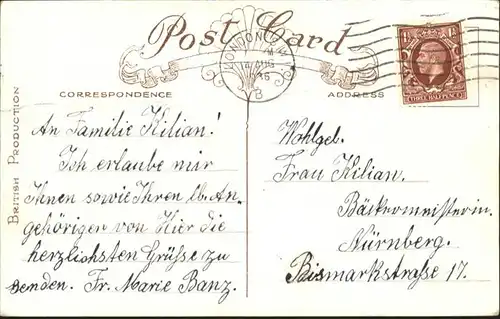 Post Card
LONDON
AUG
36
THREE HALFPENCE
CORRESPONDENCE
ADDRESS
BRITISH PRODUCTION
An Familie Kilian!
Ich erlaube mir
Ihnen sowie Ihren lb. An-
gehöriger von Hier die
herzlichsten Grüsse zu
senden. Fr. Marie Banz.
Wohlgeb.
Frau Kilian.
Bäckermeisterin.
Nürnberg.
Bismarkstraße 17.